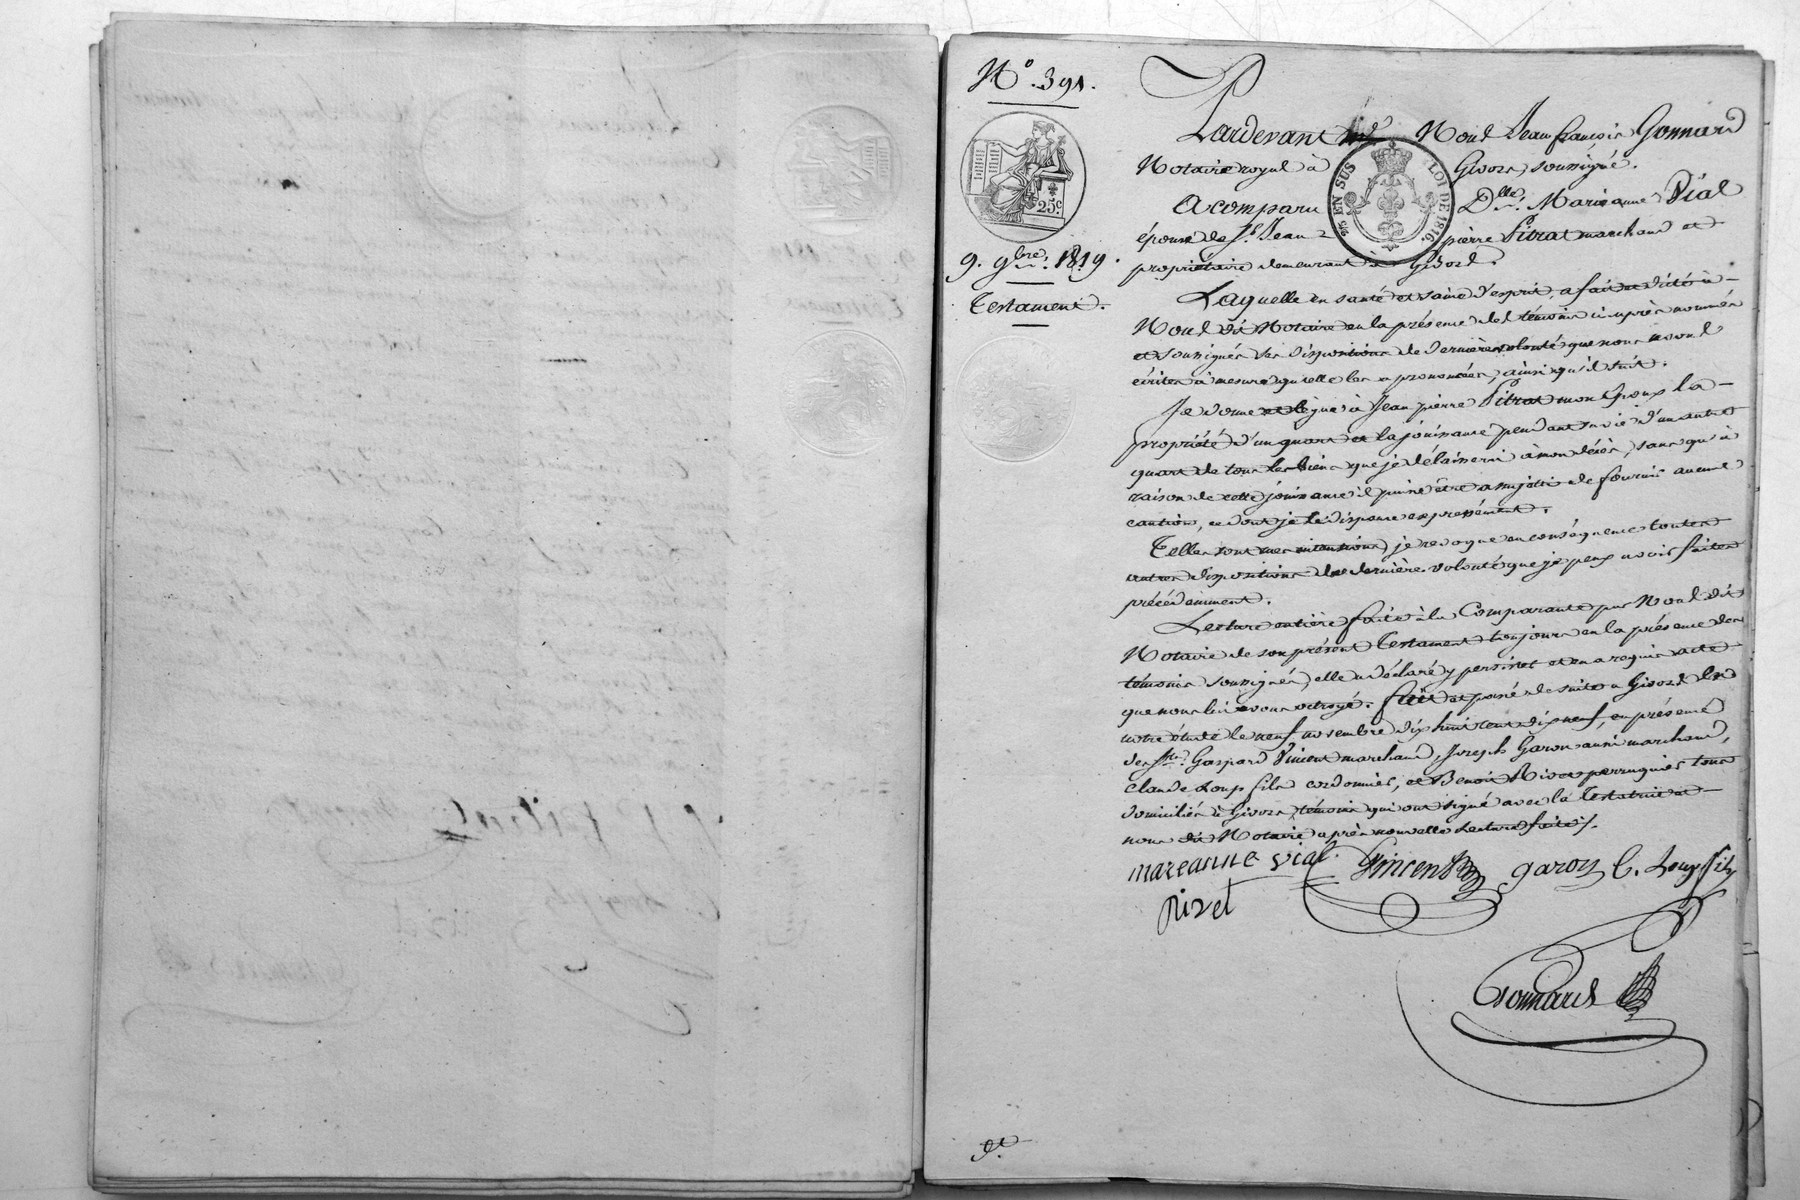 N.° 391.
25.c
9. 9bre. 1819.
Testament.
Pardevant Nous Jean françois Gonnard
Notaire royal à Givors, soussigné.
25 EN SUS LOI DE 1816.
A comparu Dlle. Marieanne Vial
épouse de Sr. Jean pierre Pitrat marchand et
propriétaire demeurant à Givors.
Laquelle en santé et saine d'esprit, a fait et dicté à
Nous dit Notaire en la présence des témoins ci après nommés
et soussignés ses dispositions de dernière volonté que nous avons
écrites à mesure qu'elle les a prononcées, ainsi qu'il suit.
Je donne et lègue à Jean pierre Pitrat mon Epoux la
propriété d'un quart et la jouissance pendant sa vie d'un autre
quart de tous les biens que je délaisserai à mon décès, sans qu'à
raison de cette jouissance il puisse être assujetti de fournir aucune
caution, ce dont je le dispense expressément.
Telles sont mes intentions, je revoque en conséquence toutes
autres dispositions de dernière volonté que je peux avoir faites
précédemment.
Lecture entière faite à la Comparante par Nous dit
Notaire de son présent Testament toujours en la présence des
témoins soussignés, elle a déclaré y persister et en a requis acte
que nous lui avons octroyé. fait et passé de suite à Givors en
notre étude le neuf novembre dix huit cent dix neuf, en présence
des Srs. Gaspard Vincent marchand, Joseph Garon aussi marchand,
Claude Loup fils cordonnier, et Benoit Rivet perruquier tous
domiciliés à Givors, témoins qui ont signé avec la Testatrice et
nous dit Notaire après nouvelle lecture faite /.
mareanne vial Vincent garon C. Loup fils
rivet
Gonnard